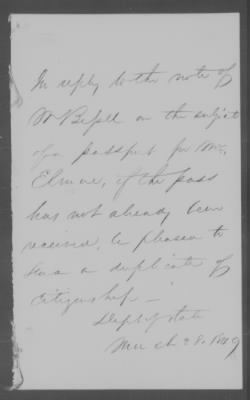 In reply to the note of
Mr Bissell on the subject
of a passport for Mr
Elmore, if the pass
has not already been
received, be pleased to
a duplicate of
Citizenship —
Dept of State
March 28.